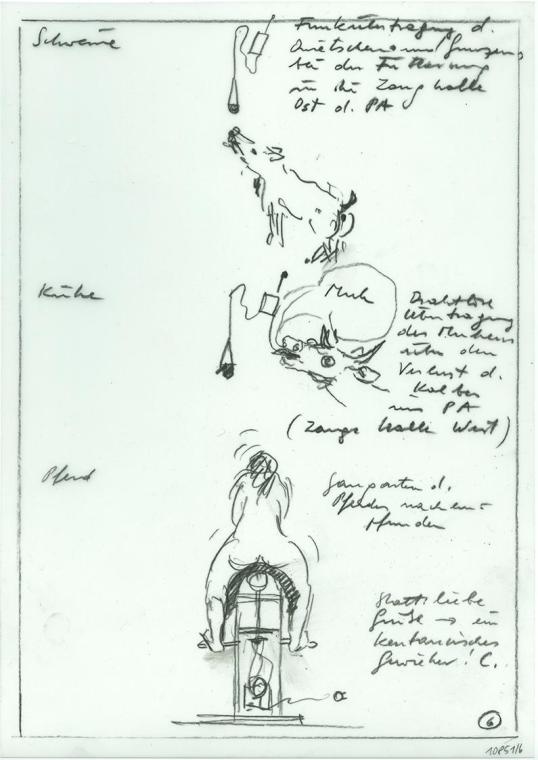 Schweine
Funkübertragung d.
Quietschens und Grunzens
bei der Fütterung
in die Zange halle
Ost d. PA
Kühe
Muh
Drahtlose
Übertragung
des Muhens
über den
Verlust d.
Kalbes
ins PA
(Zange halle West)
Pferd
Gangarten d.
Pferdes nachem-
pfunden
Statt liebe
Grüße → ein
kentaurisches
Gewieher! C.
6
10851/6